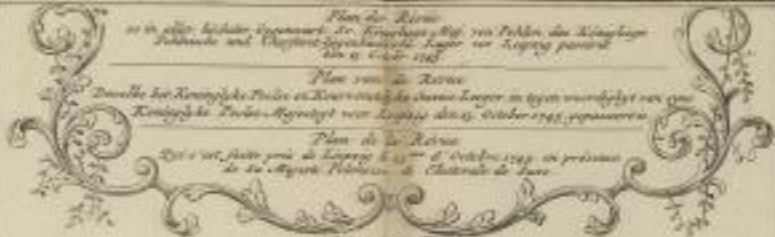 Plan der Revue
so in aller höchster Gegenwart Sr. Königlichen Maj. von Pohlen das Königliche
Pohlnische und Churfürst Lager vor Leipzig passirt
den 13 October 1745
Plan van de Revue
Dewelke het Koninglyke Poolse en Keurvorstelyke Leeger in tegenwoordigheyt van syne
Koninglyke Poolse Majesteyt voor Leipzig den 13. October 1745 gepasseert is
Plan de la Revue
Qui s'est faite près de Leipzig le 13me d'Octobre 1745 en présence
de Sa Majesté Polonoise & Electorale de Saxe